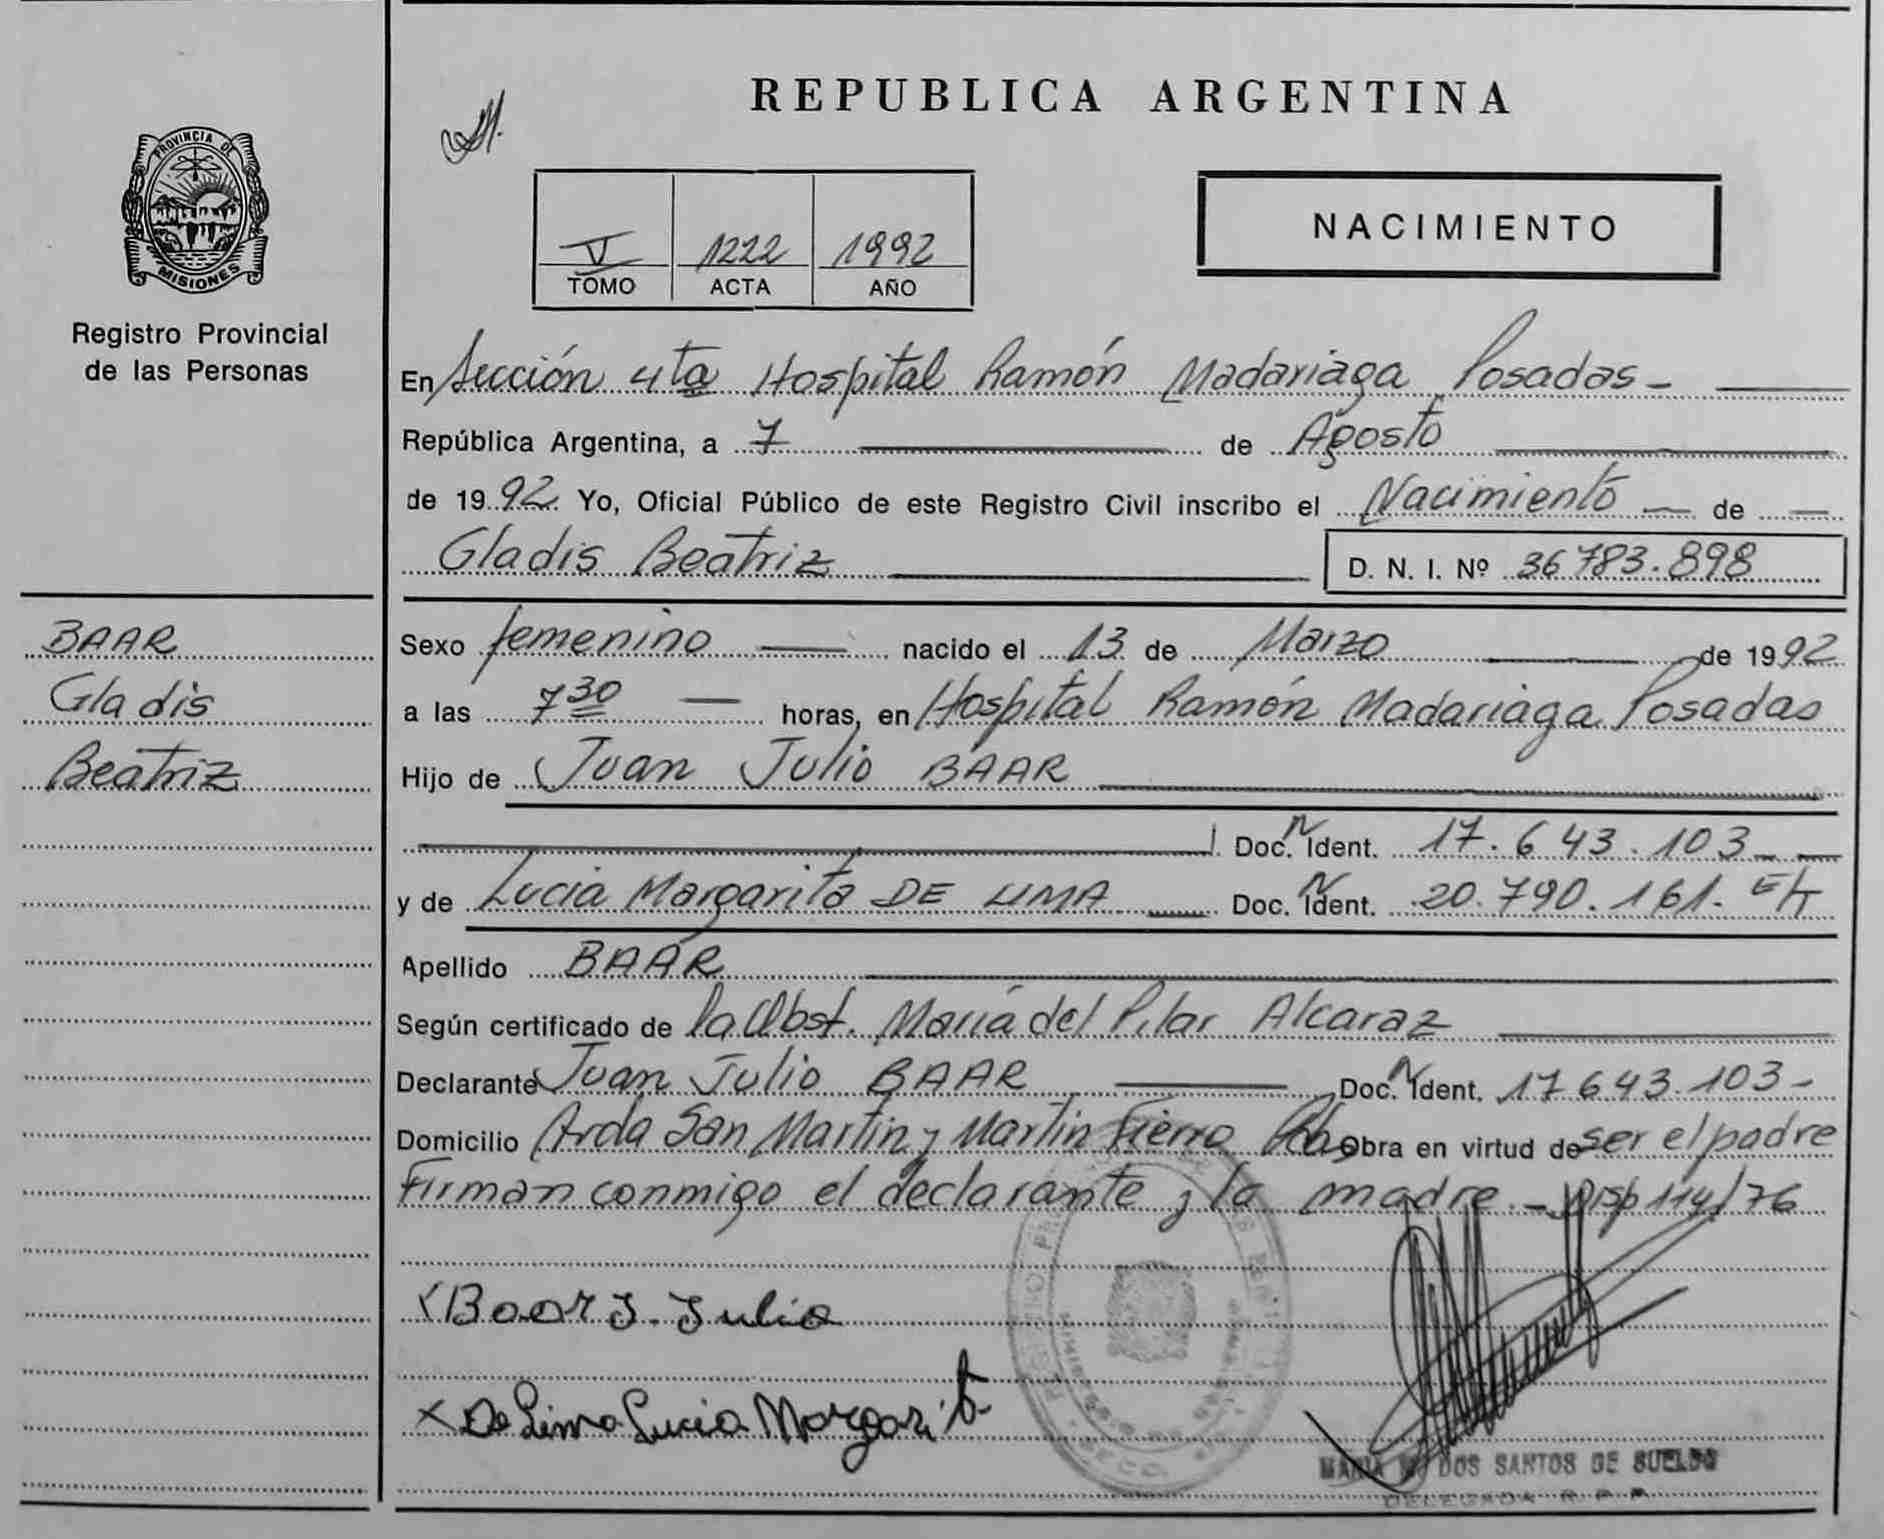 PROVINCIA DE
MISIONES
Registro Provincial
de las Personas
BAAR
Gladis
Beatriz
REPUBLICA ARGENTINA
V 1222 1992
TOMO ACTA AÑO
NACIMIENTO
En Sección 4ta Hospital Ramón Madariaga Posadas -
República Argentina, a 7 de Agosto
de 1992 Yo, Oficial Público de este Registro Civil inscribo el Nacimiento de
Gladis Beatriz D. N. I. Nº 36783.898
Sexo femenino nacido el 13 de Marzo de 1992
a las 7 30 horas, en Hospital Ramón Madariaga Posadas
Hijo de Juan Julio BAAR
Doc. N Ident. 17.643.103 -
y de Lucia Margarita DE LIMA Doc. N Ident. 20.790.161.
Apellido BAAR
Según certificado de la Obst. María del Pilar Alcaraz
Declarante Juan Julio BAAR Doc. N Ident. 17643.103 -
Domicilio Avda San Martín y Martín Fierro Obra en virtud de ser el padre
Firman conmigo el declarante y la madre. - Disp 114/76
x Baar J. Julio
x De Lima Lucia Margarita
DOS SANTOS DE SUELDO
DELEGADA R. P. P.